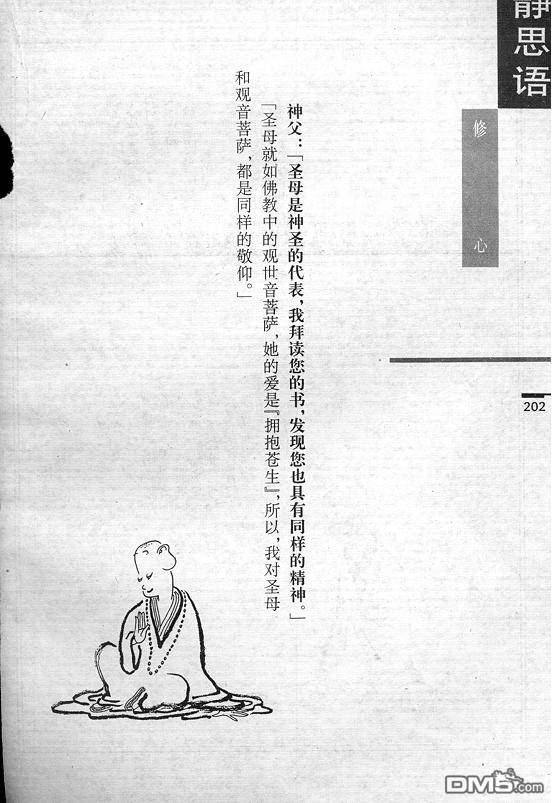 静思语
修心
神父：「圣母是神圣的代表，我拜读您的书，发现您也具有同样的精神。」
「圣母就如佛教中的观世音菩萨，她的爱是『拥抱苍生』，所以，我对圣母
和观音菩萨，都是同样的敬仰。」
202
DM5.com